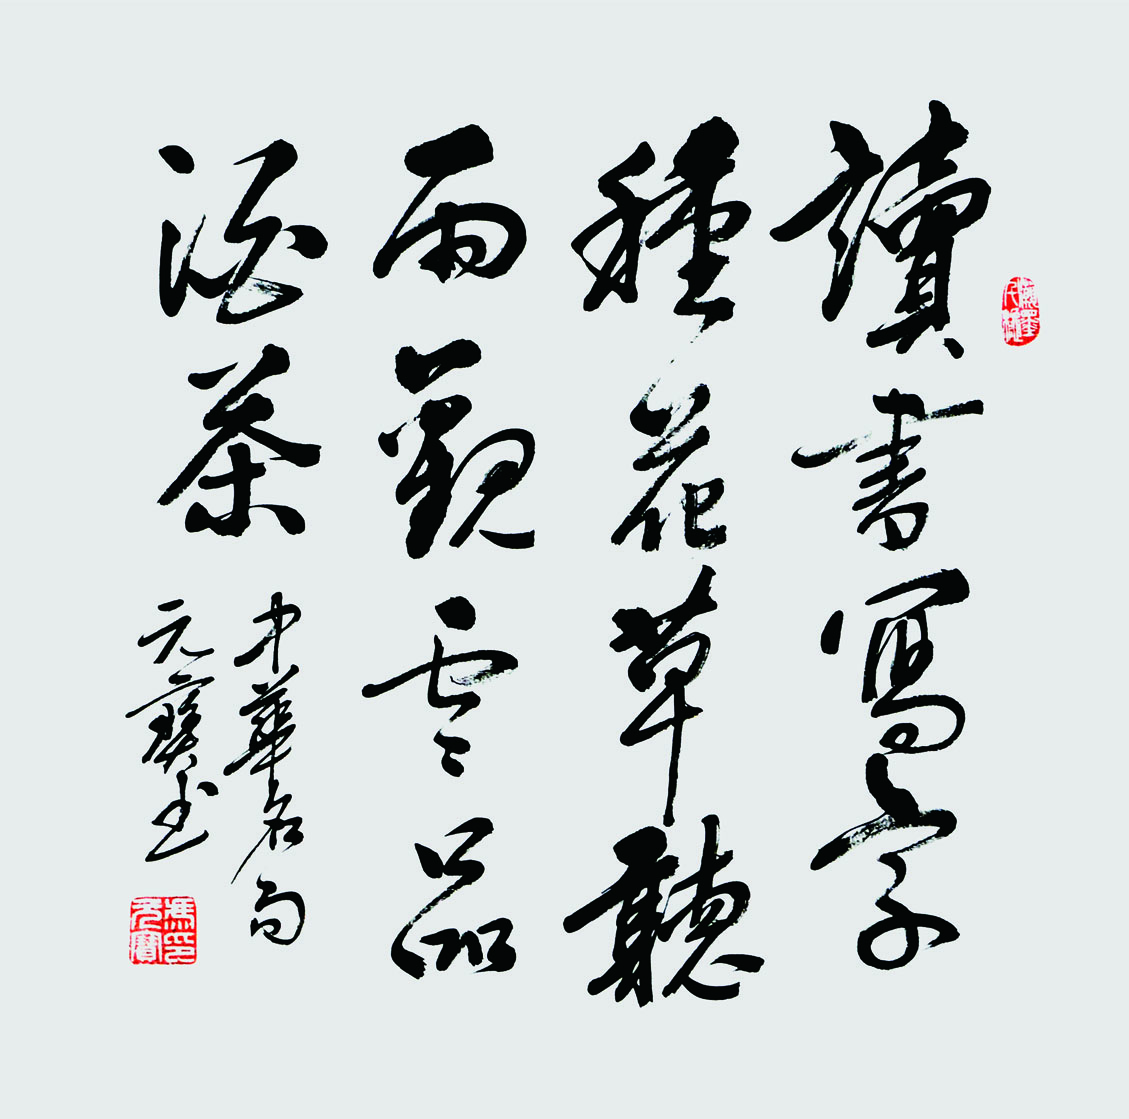 讀書寫字
種花草聽
雨觀雲品
酒茶
中華名句
元寶書
馮印元寶